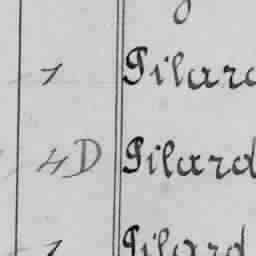 1 Pilard
4D Pilard
1 Pilard